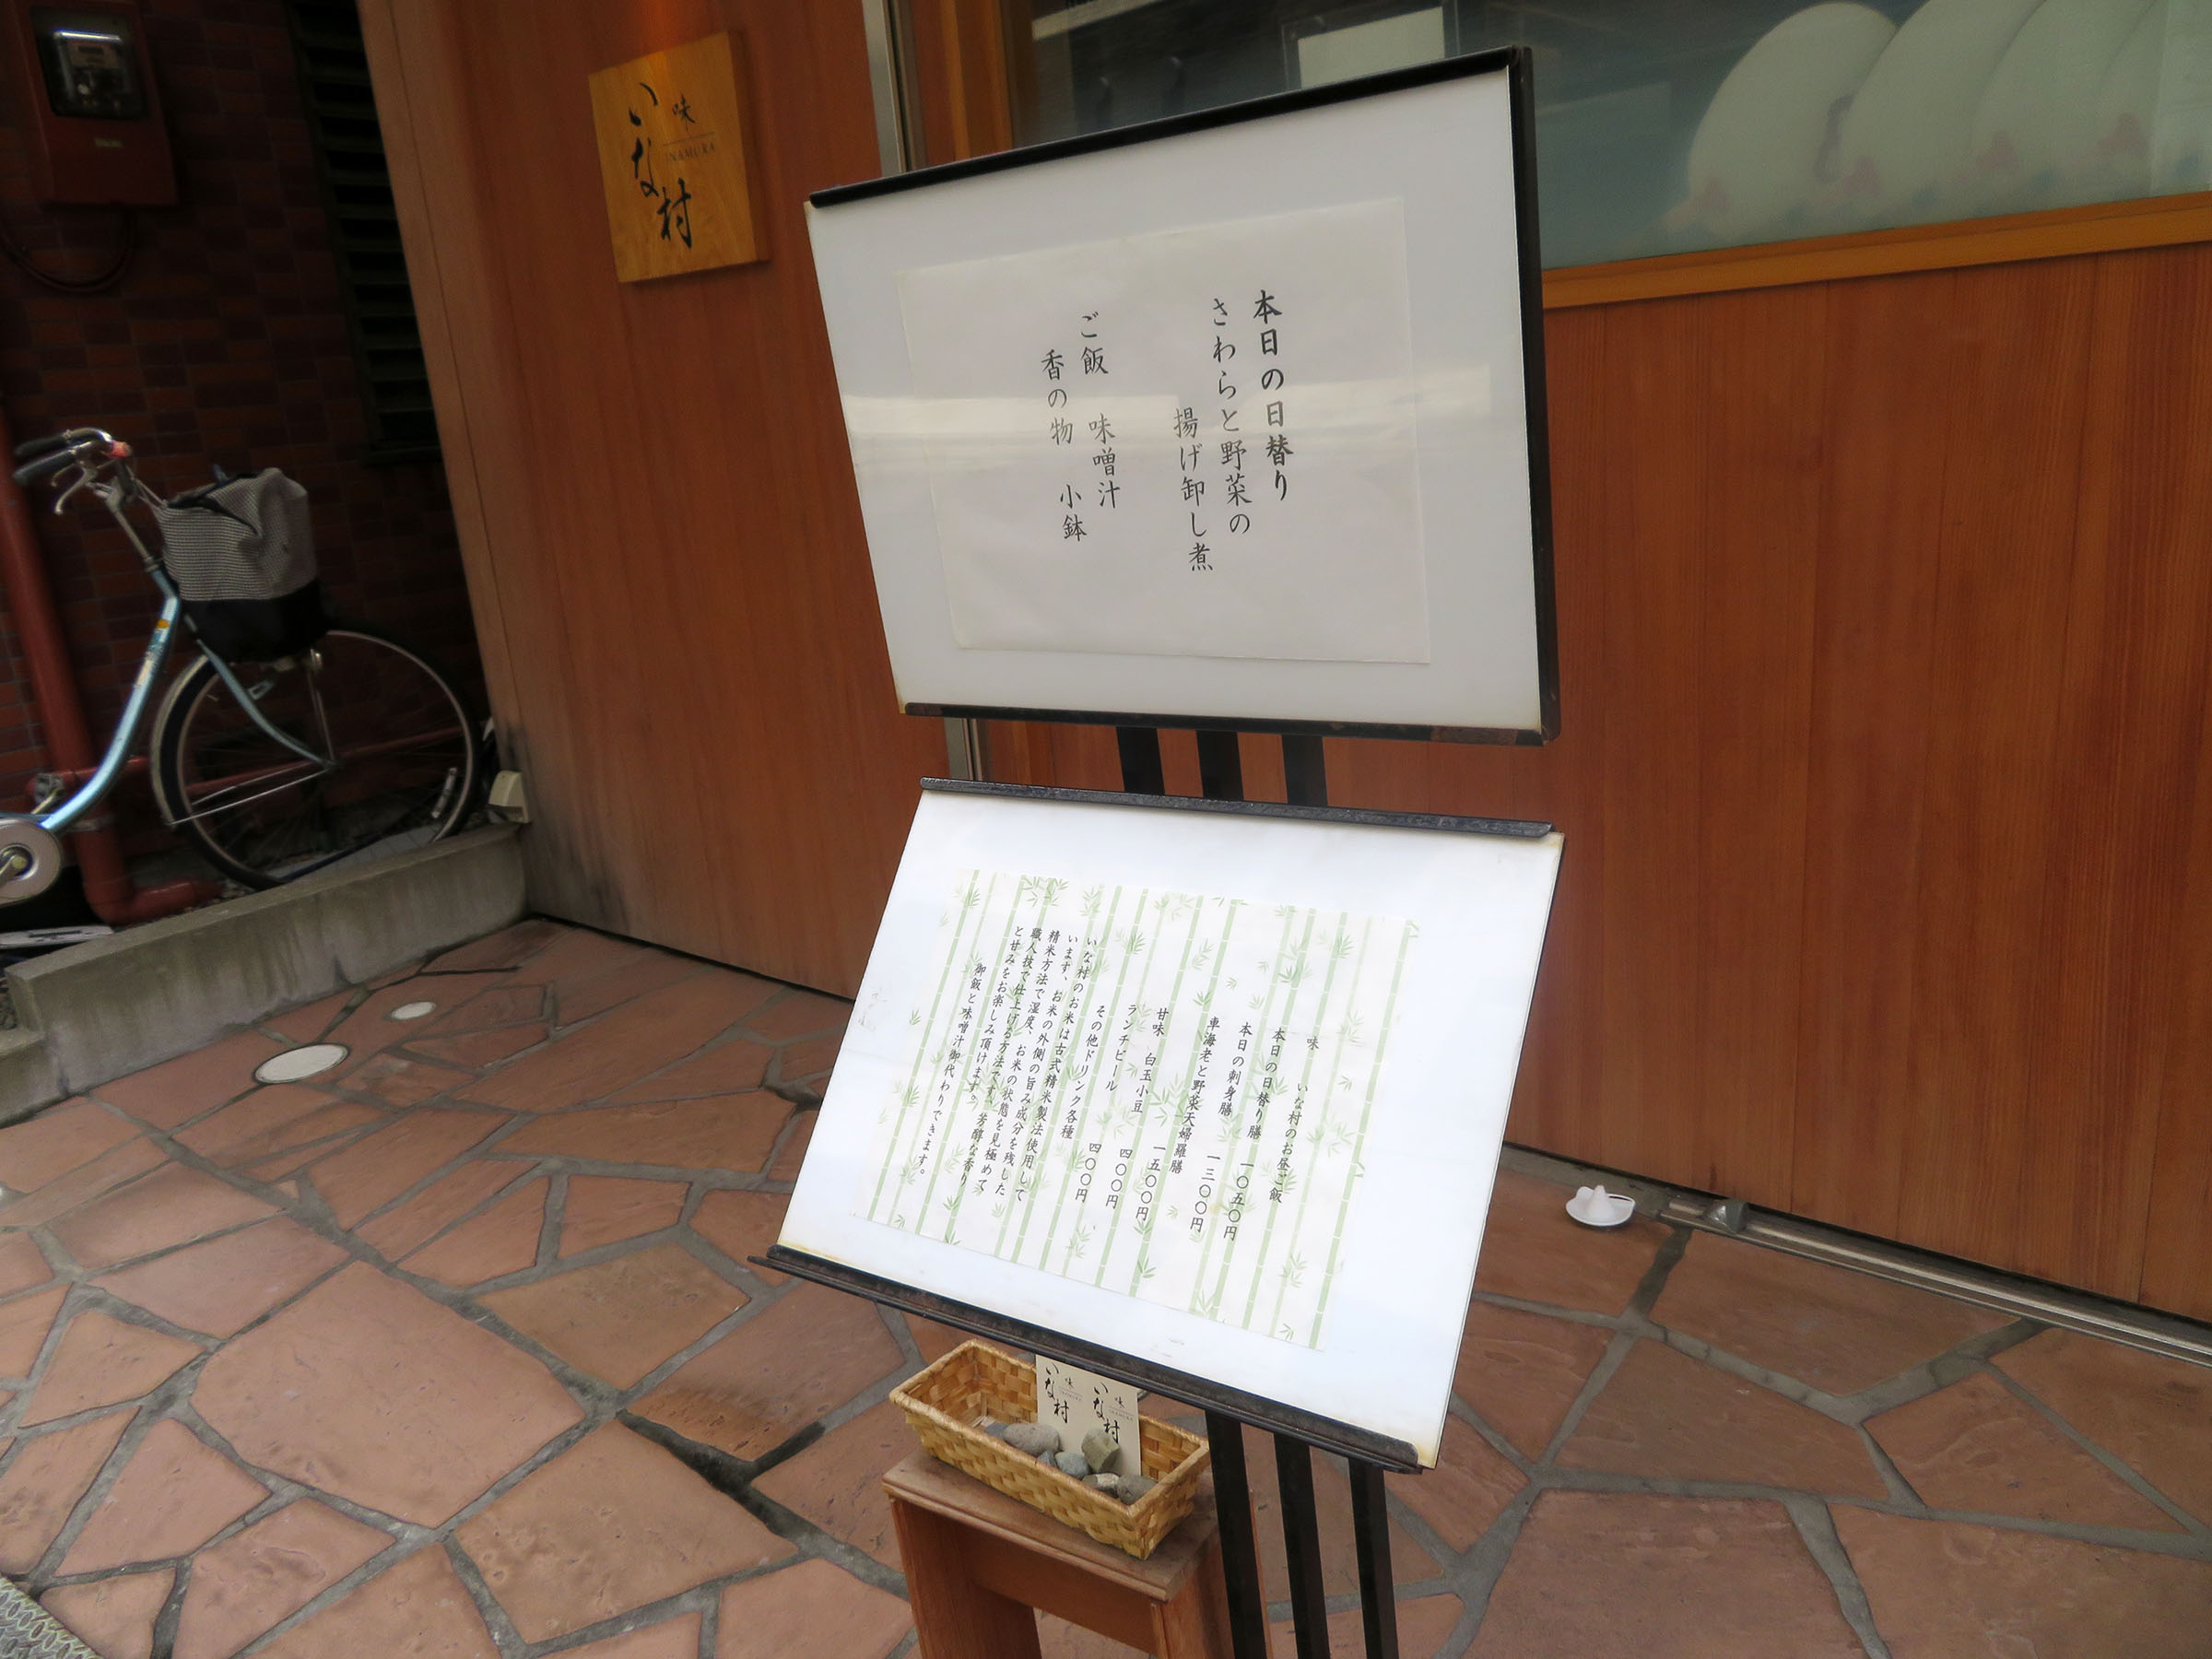 味
INAMURA
いな村
本日の日替り
さわらと野菜の
揚げ卸し煮
ご飯 味噌汁
香の物 小鉢
味 いな村のお昼ご飯
本日の日替り膳 一〇五〇円
本日の刺身膳 一三〇〇円
車海老と野菜天婦羅膳 一五〇〇円
甘味 白玉小豆 四〇〇円
ランチビール 四〇〇円
その他ドリンク各種
いな村のお米は古式精米製法使用して
います、お米の外側の旨み成分を残した
精米方法で湿度、お米の状態を見極めて
職人技で仕上げる方法です、芳醇な香り
と甘みをお楽しみ頂けます。
御飯と味噌汁御代わりできます。
味
INAMURA
いな村
味
INAMURA
いな村